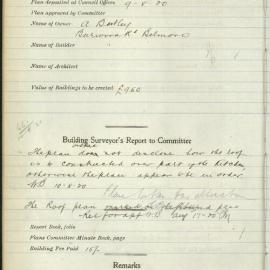 Plan deposited at Council Offices 9-8-20
Plan approved by Committee
Name of Owner A Bartley
Burwood Rd Belmore
Name of Builder
Name of Architect
Value of Buildings to be erected £960
Building Surveyor's Report to Committee
The plan does not disclose how the roof
is to constructed over part of the kitchen
otherwise the plan appears to be in order
10-8-20
the Roof plan
Aug 17-20
Report Book, folio
Plans Committee Minute Book, page
Building Fee Paid 15/-
Remarks